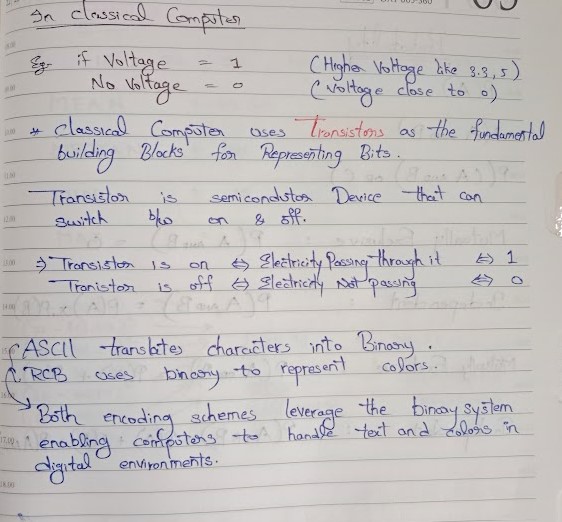 In classical Computer
Eg. if Voltage = 1 (Higher Voltage like 3.3, 5)
No Voltage = 0 (Voltage close to 0)
* Classical Computer uses Transistors as the fundamental
building Blocks for Representing Bits.
Transistor is semiconductor Device that can
Switch b/w on & off.
⇒ Transistor is on ⇔ Electricity Passing through it ⇔ 1
Tranistor is off ⇔ Electricity Not passing ⇔ 0
ASCII translates characters into Binary.
RGB uses binary to represent colors.
Both encoding schemes leverage the binary system
enabling computers to handle text and colors in
digital environments.